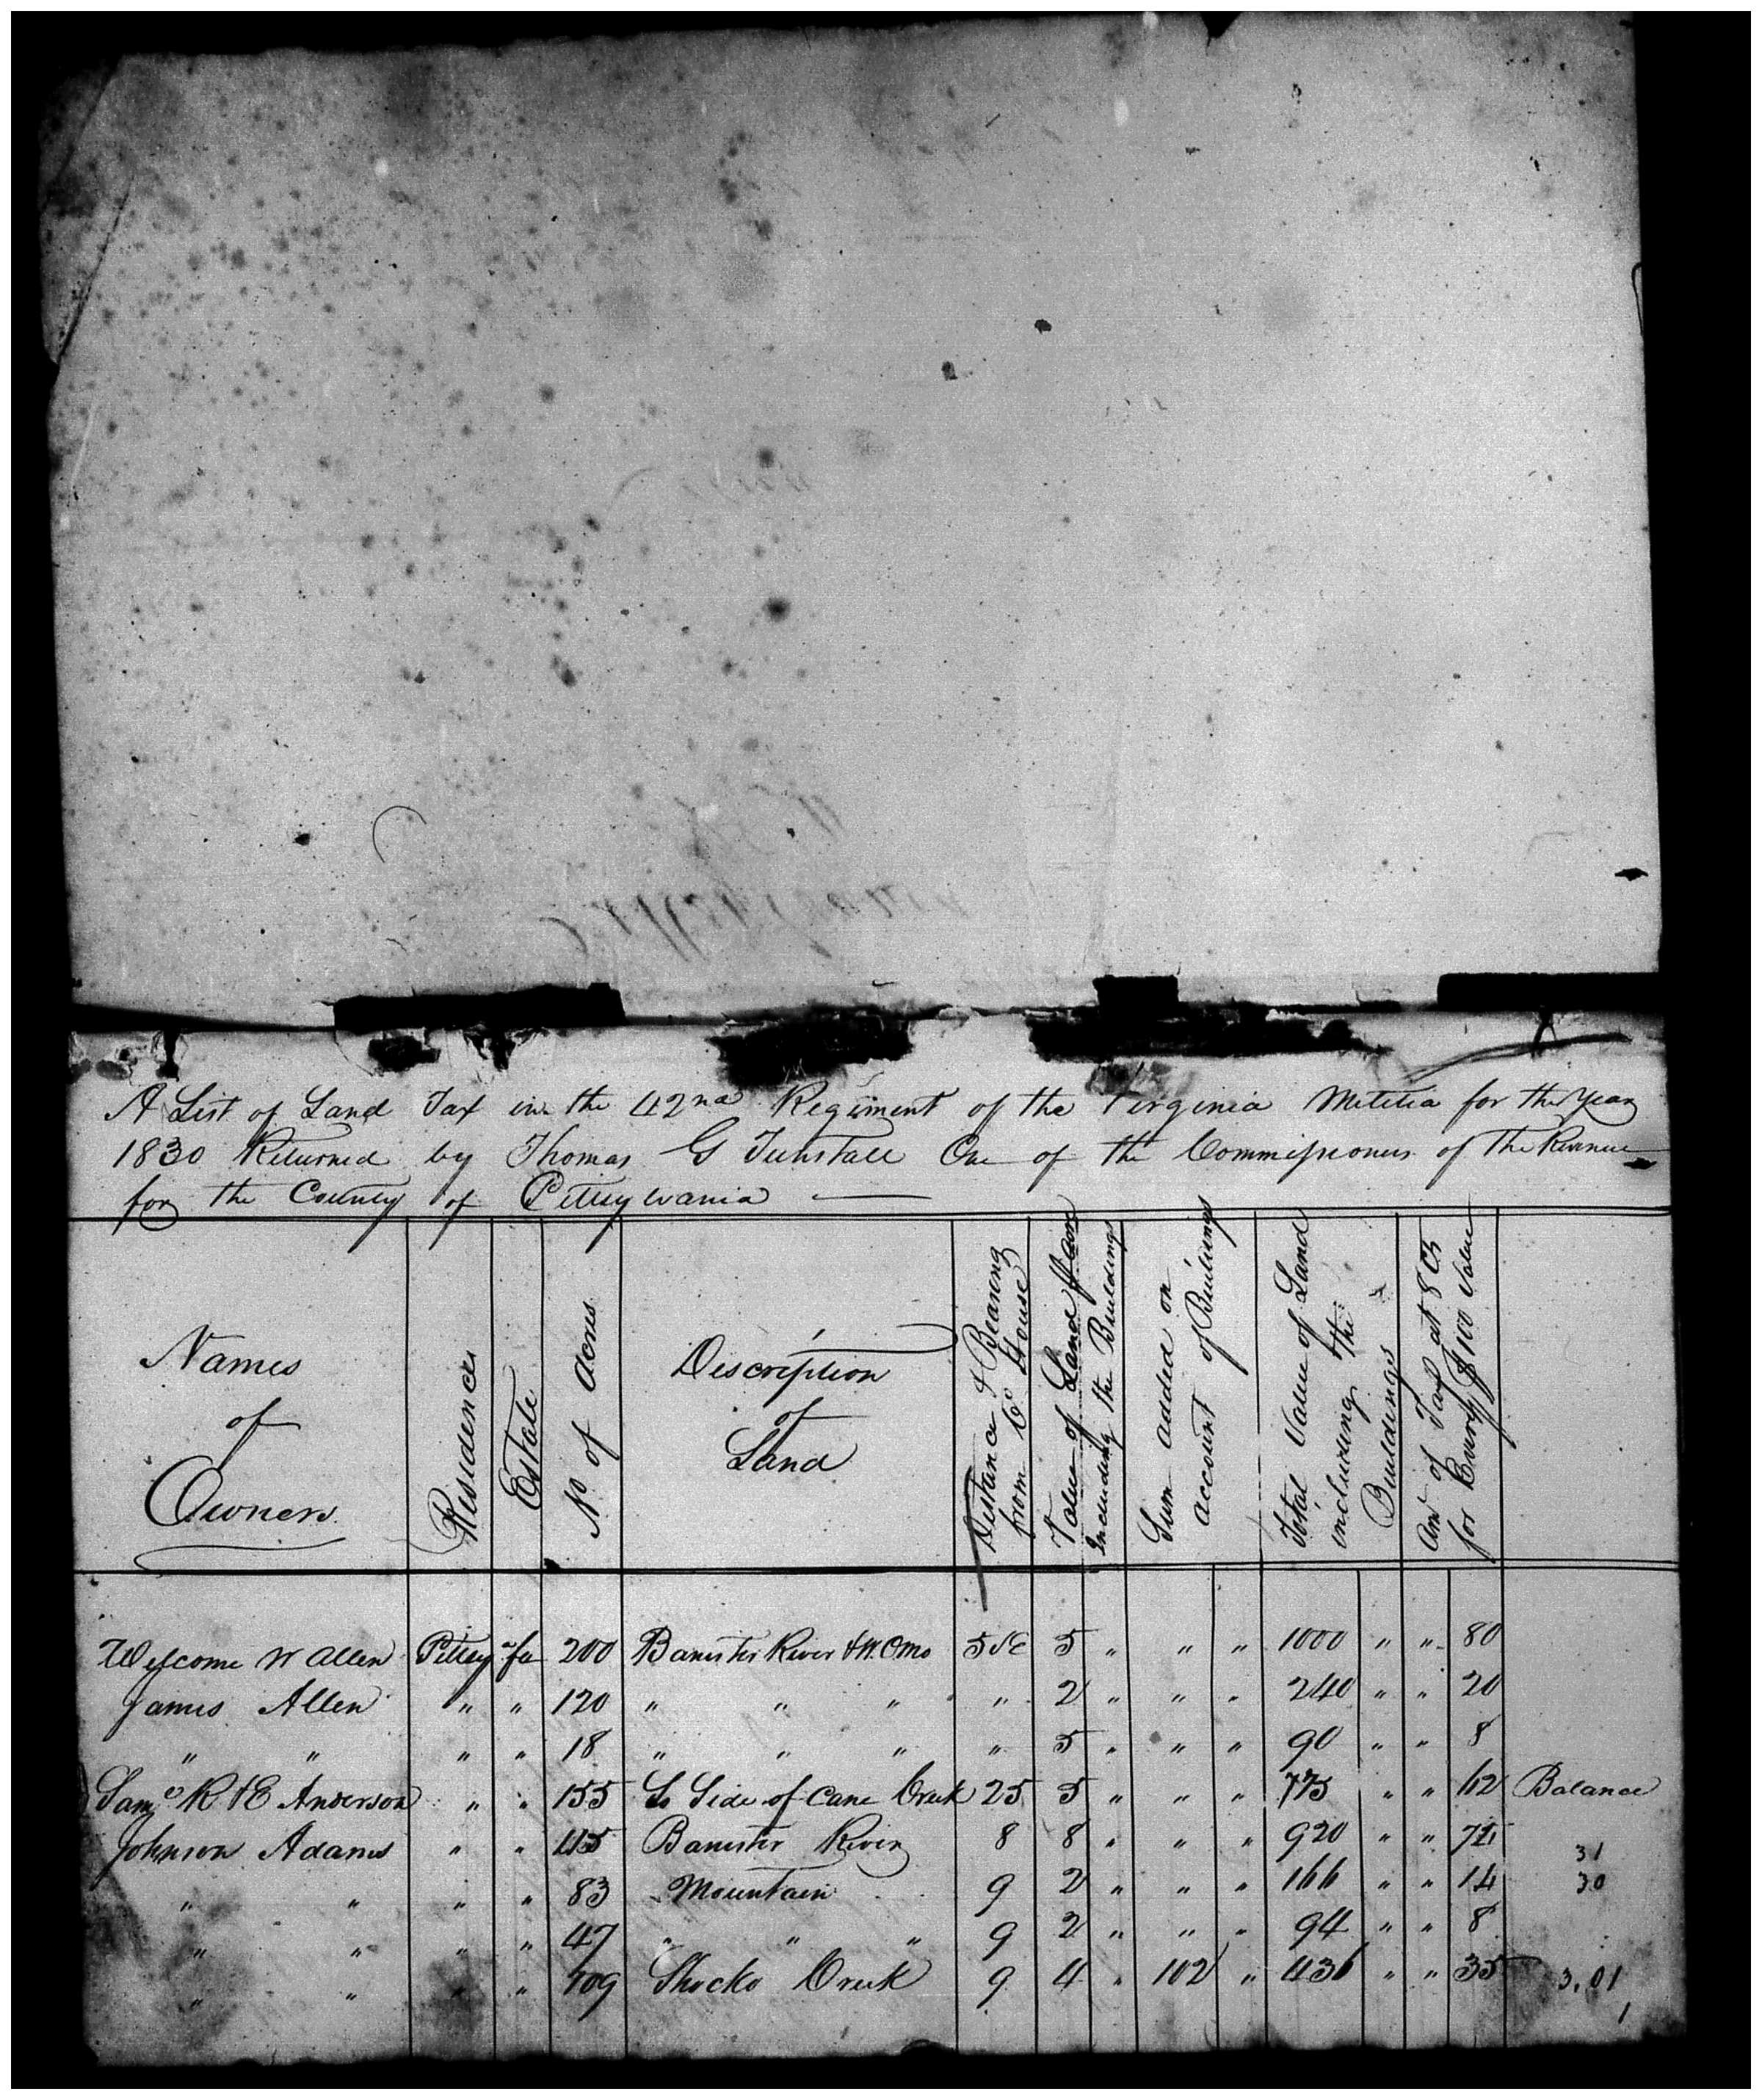 A List of Land Tax in the 42nd Regiment of the Virginia Melitia for the Year
1830 Returned by Thomas G Tunstall One of the Commissioners of the Revenue
for the County of Pittsylvania
Names of Owners
Residence
Estate
No of Acres
Description of Land
Distance & Bearing from Co House
Value of Land Including the Buildings
Sum added on account of Buildings
Total Value of Land including the Buildings
Amt of Tax at 8 Cts for Every $100 Value
Welcome W Allen Pittsy fee 200 Banister River & W.O Mo 5 5 " " " 1000 " " 80
James Allen " " 120 " " " " 2 " " " 240 " " 20
" " " " 18 " " " " 5 " " " 90 " " 8
Saml R & E Anderson " " 155 So Side of Cane Creek 25 5 " " " 775 " " 62 Balance
Johnson Adams " " 115 Banister River 8 8 " " " 920 " " 74 31
" " " " 83 Mountain 9 2 " " " 166 " " 14 30
" " " " 47 " " " 9 2 " " " 94 " " 8
" " " " 109 Shocko Creek 9 4 " 102 " 436 " " 35 3.01
1